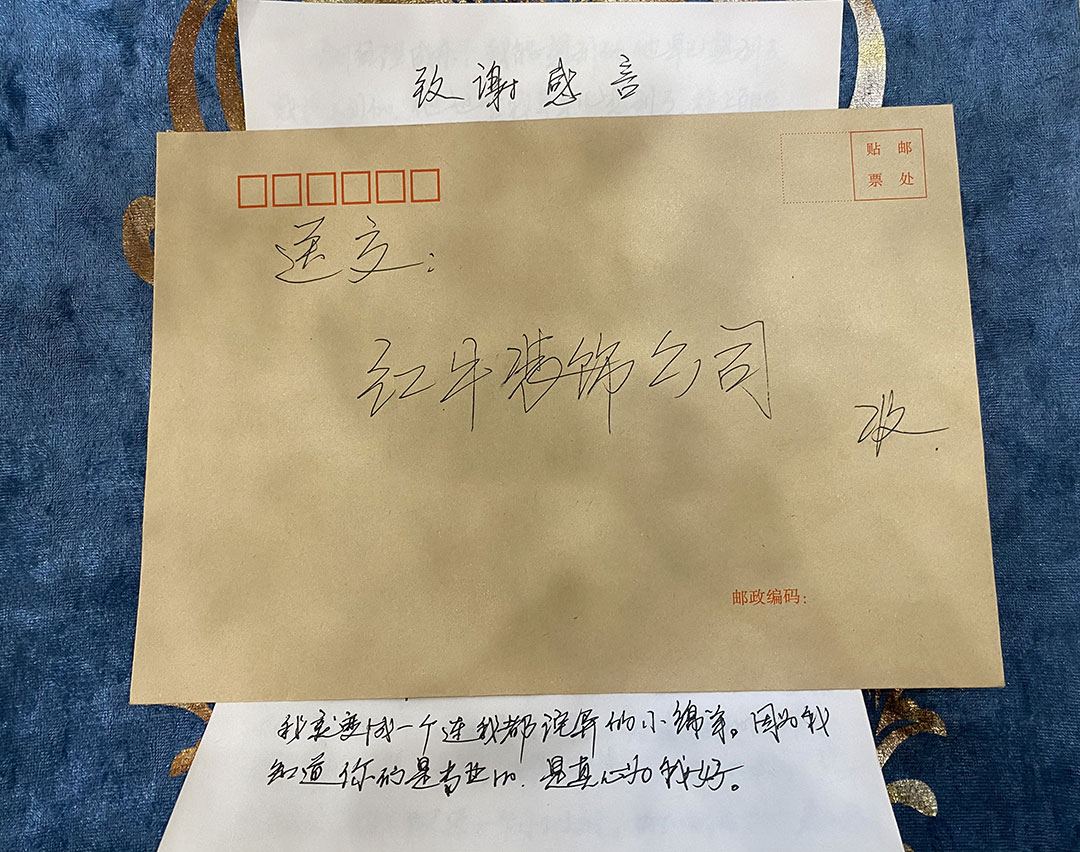 致谢感言
贴 邮
票 处
送交:
红牛装饰公司
收.
邮政编码:
我我变成一个连我都诧异的小绵羊。因为我
知道你们是专业的.是真心为我好。